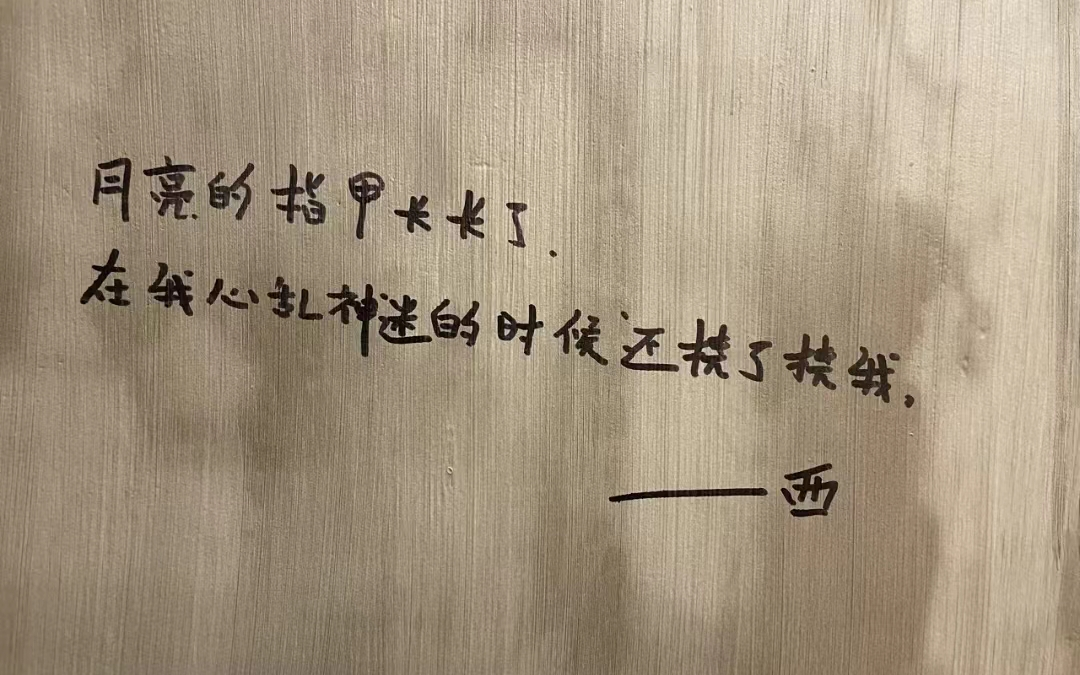 月亮的指甲长长了.
在我心乱神迷的时候还挠了挠我。
——西